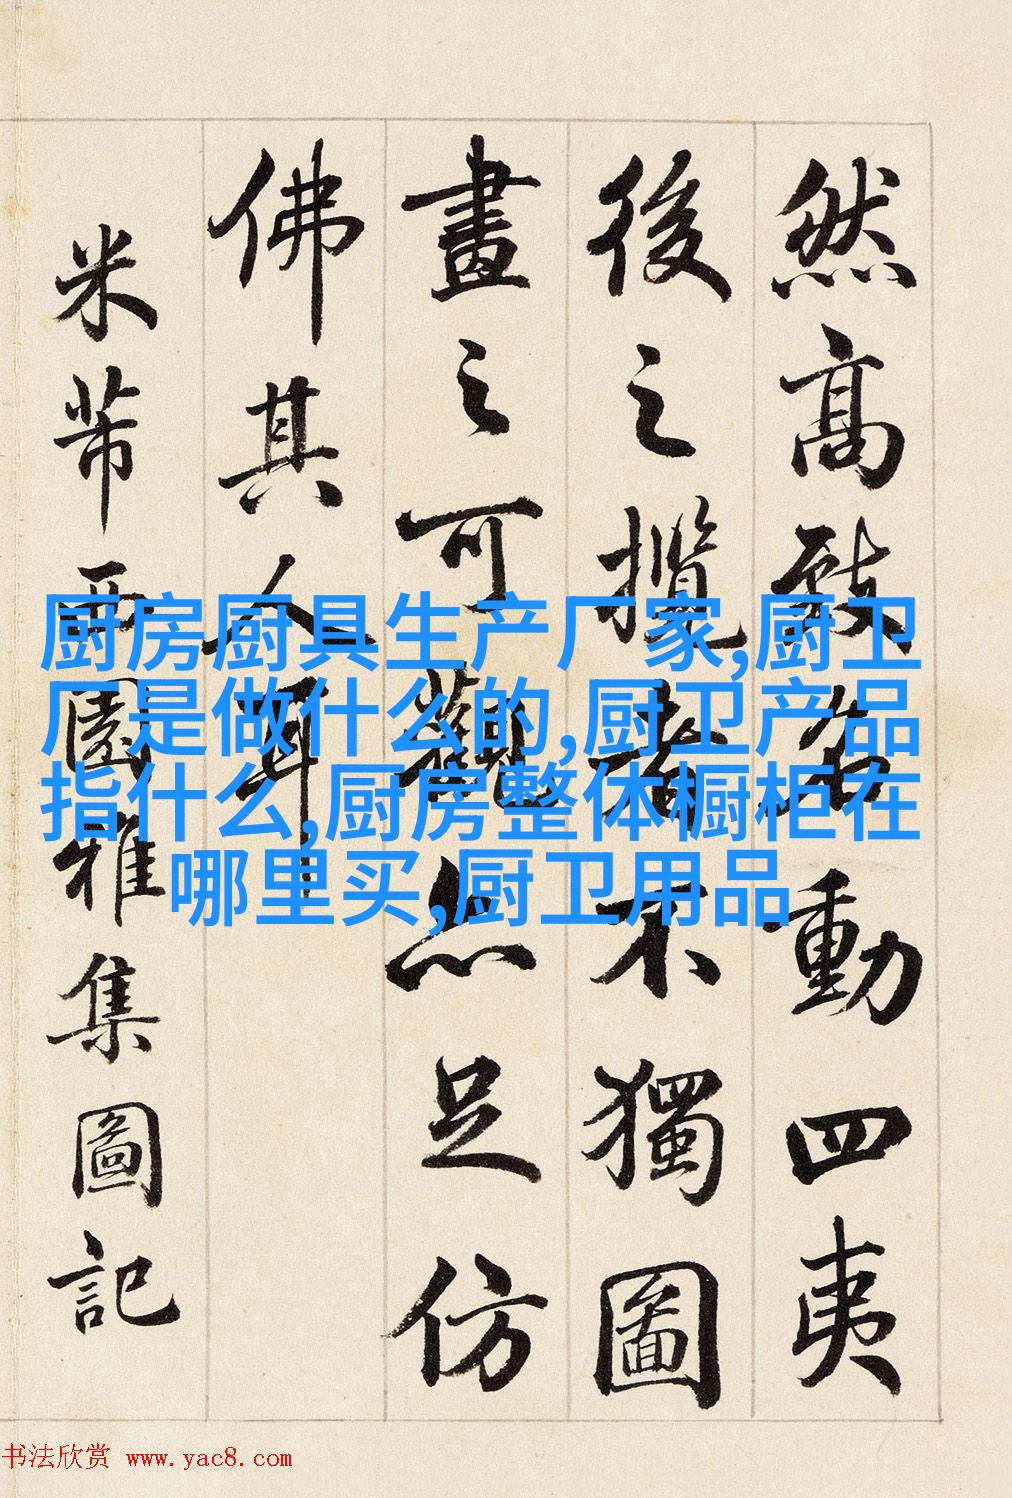 然高致名動四夷
後之攬者不獨圖
畫之可觀亦足仿
佛其人耳
米芾西園雅集圖記
厨房厨具生产厂家,厨卫
厂是做什么的,厨卫产品
指什么,厨房整体橱柜在
哪里买,厨卫用品
书法欣赏 www.yac8.com